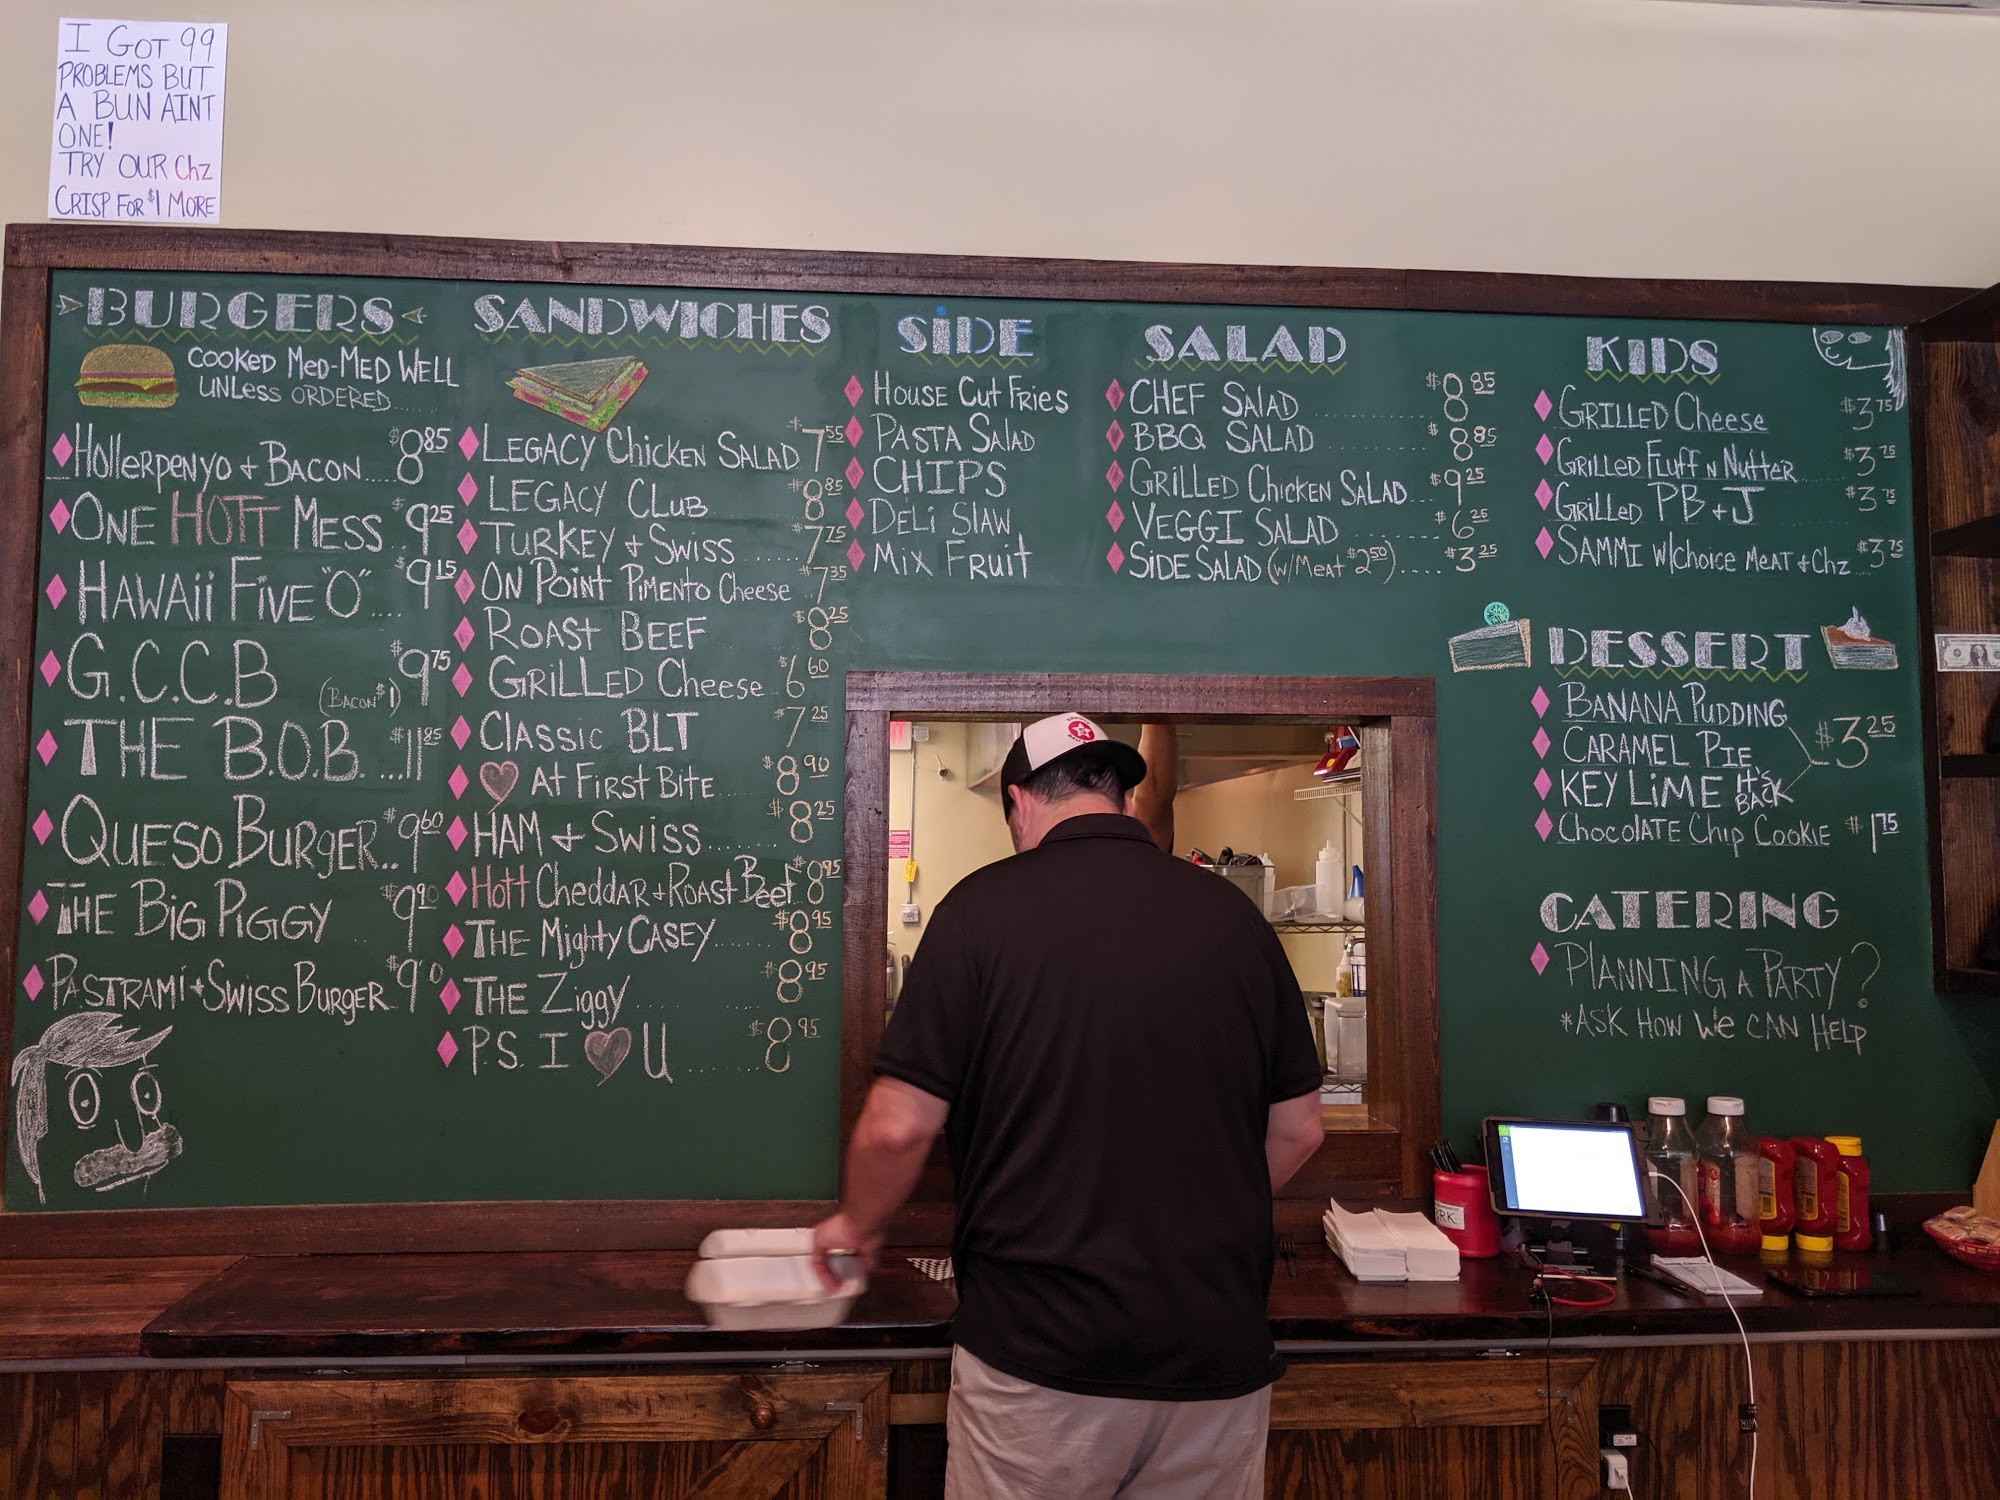 I GOT 99
PROBLEMS BUT
A BUN AINT
ONE!
TRY OUR Chz
CRISP FOR $1 MORE
BURGERS
COOKED MED-MED WELL
UNLESS ORDERED......
HOllERPENYO + BACON.... $8.85
ONE HOTT MESS.. $9.25
HAWAii FivE "O".... $9.15
G.C.C.B $9.75
(BACON $1)
THE B.O.B. ...$11.85
QUESO BURGER.. $9.60
THE BIG PIGGY .. $9.90
PASTRAMI + SWISS BURGER..
SANDWICHES
LEGACY Chicken SALAD $7.55
LEGACY CLUB $8.85
TURKEY + SWISS ...... $7.75
ON POINT PIMENTO Cheese .. $7.35
ROAST BEEF $8.25
GRILLED Cheese $6.60
CLASSIC BLT $7.25
♡ AT FIRST BITE $8.90
HAM + SWISS....... $8.25
HOTT CHEDDAR + ROAST BEEF $8.95
THE Mighty CASEY...... $8.95
THE Ziggy $8.95
P.S. I ♡ U ....... $8.95
SiDE
HOUSE CUT FRIES
PASTA SALAD
CHIPS
DELI SLAW
MIX FRUIT
SALAD
CHEF SALAD ............ $8.85
BBQ SALAD ............ $8.85
GRILLED CHICKEN SALAD... $9.25
VEGGI SALAD $6.25
SIDE SALAD (w/MEAT $2.50).... $3.25
KIDS
GRILLED Cheese $3.75
GRILLED FLUFF N NUTTER $3.75
GRILLED PB + J $3.75
SAMMI w/CHOICE MEAT + Chz $3.75
DESSERT
BANANA PUDDING
CARAMEL PIE $3.25
KEY LIME IT'S BACK
CHOCOLATE CHIP COOKIE $1.75
CATERING
PLANNING A PARTY?
*ASK HOW WE CAN HELP